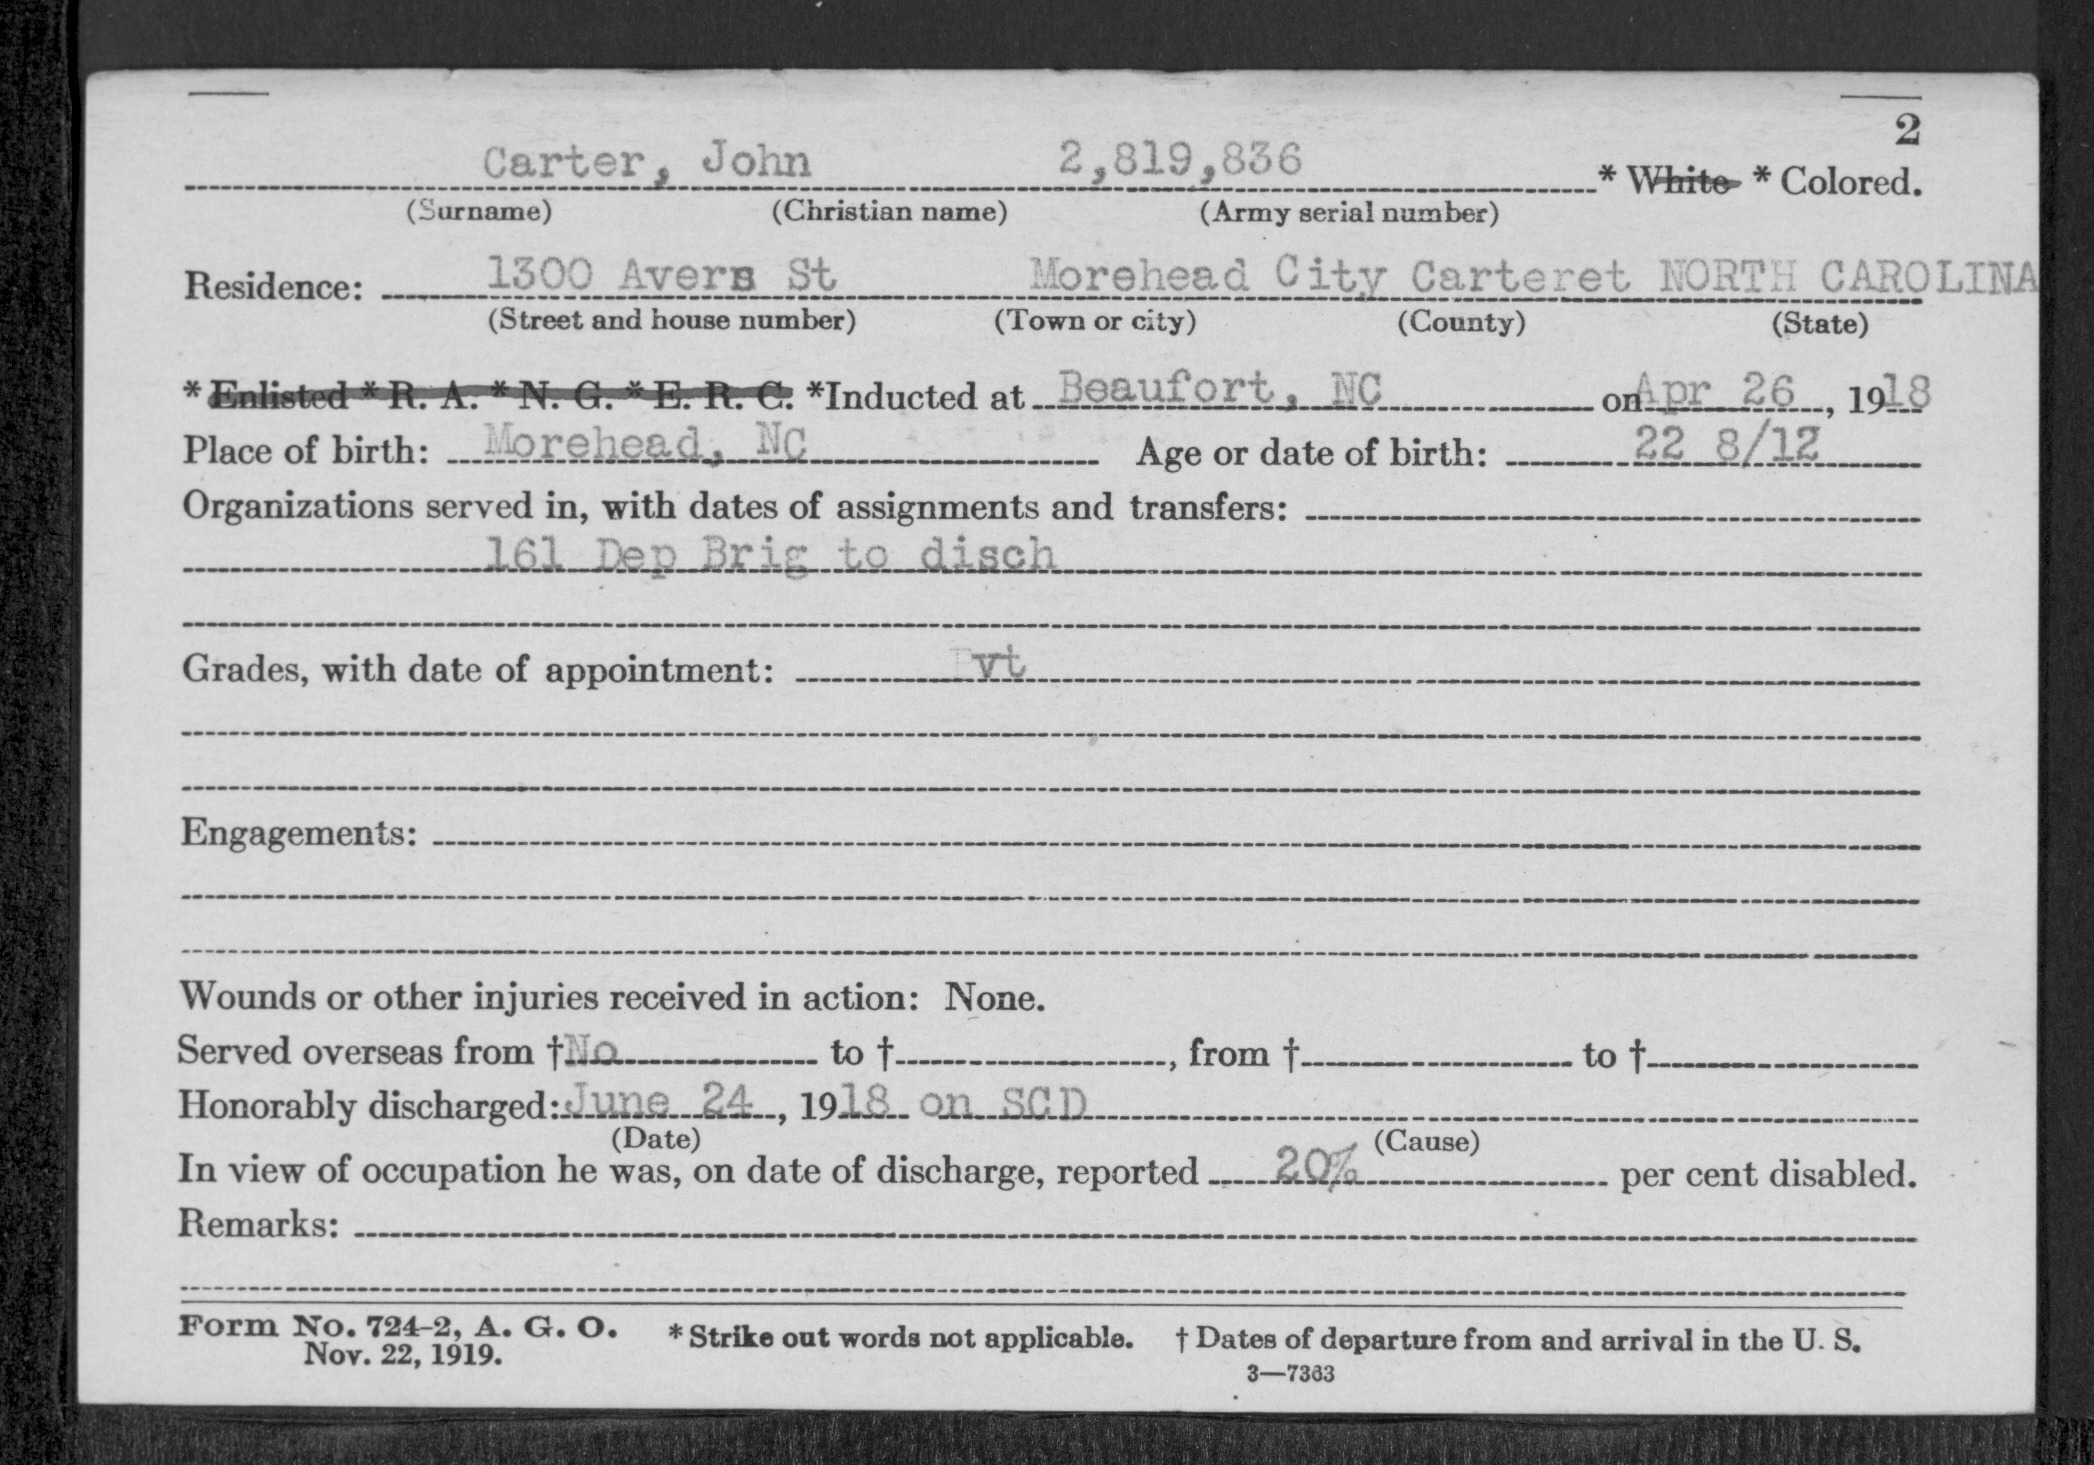 2
Carter, John 2,819,836 * White * Colored.
(Surname) (Christian name) (Army serial number)
Residence: 1300 Avers St Morehead City Carteret NORTH CAROLINA
(Street and house number) (Town or city) (County) (State)
* Enlisted * R. A. * N. G. * E. R. C. *Inducted at Beaufort, NC on Apr 26, 1918
Place of birth: Morehead, NC Age or date of birth: 22 8/12
Organizations served in, with dates of assignments and transfers:
161 Dep Brig to disch
Grades, with date of appointment: Pvt
Engagements:
Wounds or other injuries received in action: None.
Served overseas from † No to †, from † to †
Honorably discharged: June 24, 1918 on SCD
(Date) (Cause)
In view of occupation he was, on date of discharge, reported 20% per cent disabled.
Remarks:
Form No. 724-2, A. G. O. * Strike out words not applicable. † Dates of departure from and arrival in the U. S.
Nov. 22, 1919.
3—7363